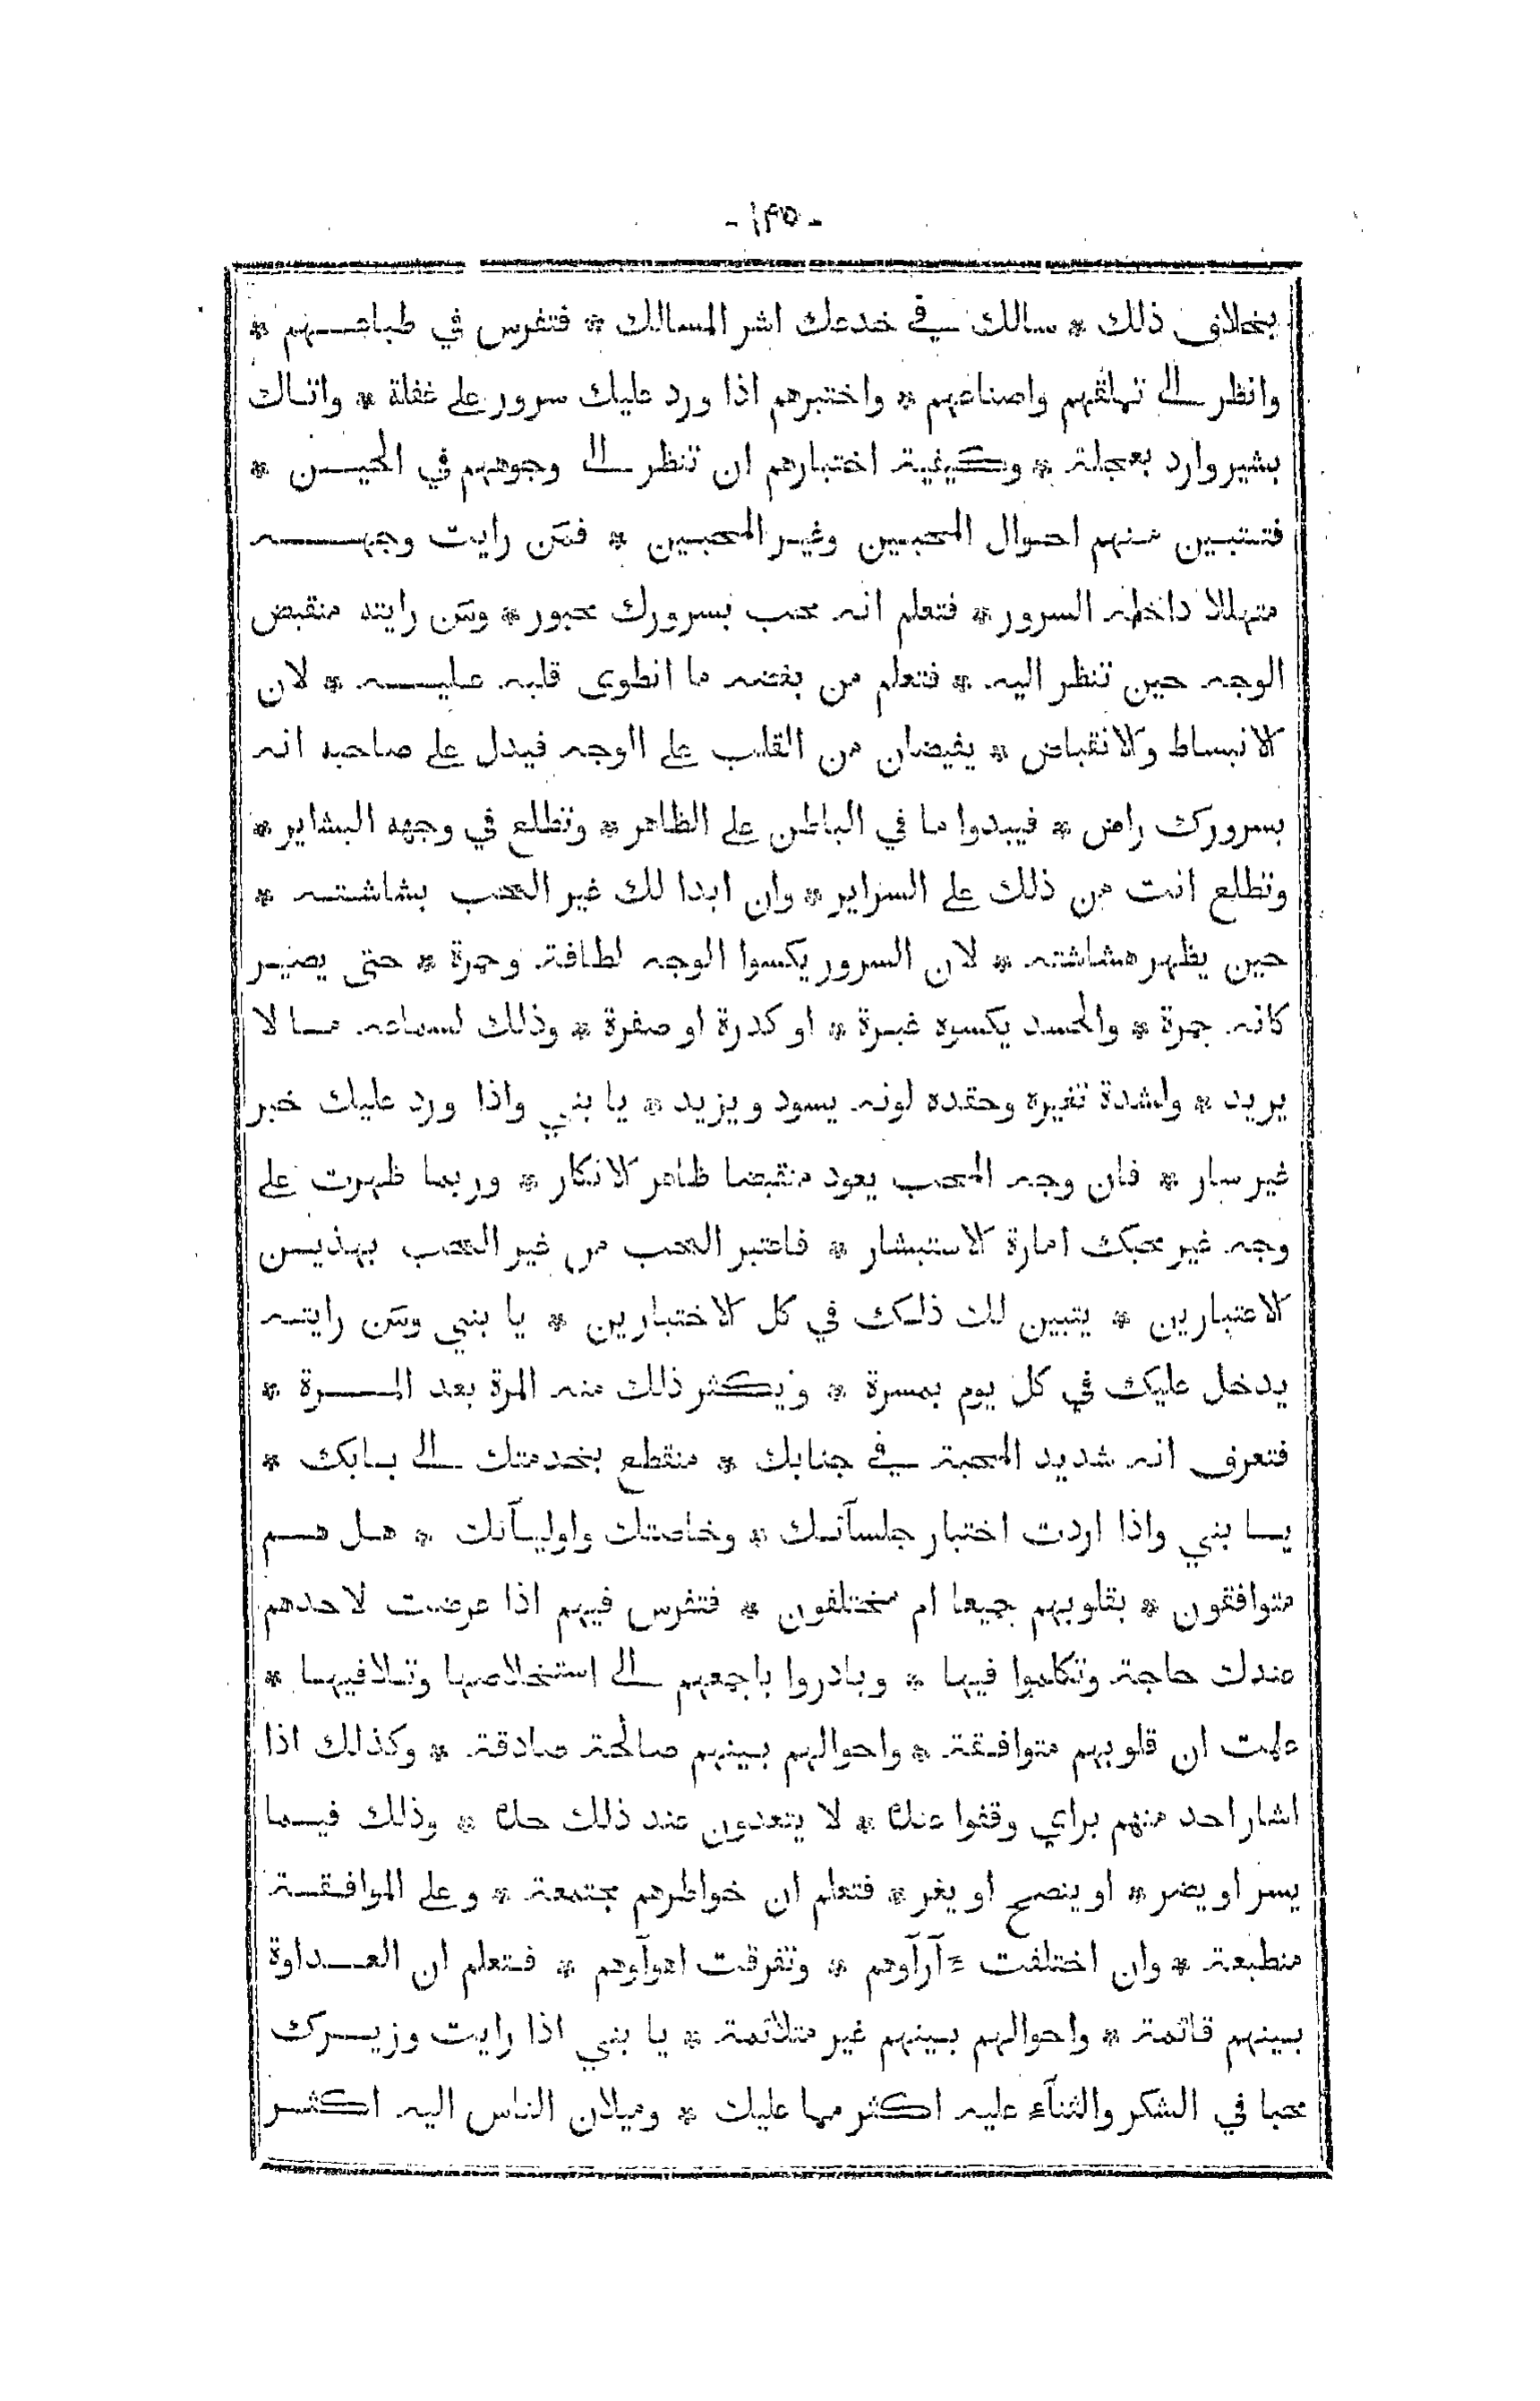 - ١٤٥ -
بخلاف ذلك * سالك في خدعك اشر المسالك * فتفرس في طباعهم *
وانظر الى تملقهم واصناعهم * واختبرهم اذا ورد عليك سرور على غفلة * واتاك
بشير وارد بعجلة * وكيفية اختبارهم ان تنظر الى وجوههم في الحين *
فتتبين منهم احوال المحبين وغير المحبين * فمن رايت وجهه
متهللا داخله السرور * فتعلم انه محب بسرورك محبور * ومن رايته منقبض
الوجه حين تنظر اليه * فتعلم من بغضه ما انطوى قلبه عليه * لان
الانبساط والانقباض * يفيضان من القلب على الوجه فيدل على صاحبه انه
بسرورك راض * فيبدوا ما في الباطن على الظاهر * وتطلع في وجهه البشاير *
وتطلع انت من ذلك على السراير * وان ابدا لك غير المحب بشاشته *
حين يظهر هشاشته * لان السرور يكسوا الوجه لطافة وحمرة * حتى يصير
كانه جمرة * والحسد يكسوه غبرة * او كدرة او صفرة * وذلك لسماعه ما لا
يريد * ولشدة تغيره وحقده لونه يسود ويزيد * يا بني واذا ورد عليك خبر
غير سار * فان وجه المحب يعود منقبضا ظاهر الانكار * وربما ظهرت على
وجه غير محبك امارة الاستبشار * فاعتبر المحب من غير المحب بهذين
الاعتبارين * يتبين لك ذلك في كل الاختبارين * يا بني ومن رايته
يدخل عليك في كل يوم بمسرة * ويكثر ذلك منه المرة بعد المرة *
فتعرف انه شديد المحبة في جنابك * منقطع بخدمتك الى بابك *
يا بني واذا اردت اختبار جلسآئك * وخاصتك واوليآئك * هل هم
متوافقون * بقلوبهم جميعا ام مختلفون * فتفرس فيهم اذا عرضت لاحدهم
عندك حاجة وتكلموا فيها * وبادروا باجمعهم الى استخلاصها وتلافيها *
علمت ان قلوبهم متوافقة * واحوالهم بينهم صالحة صادقة * وكذلك اذا
اشار احد منهم براي وقفوا عنده * لا يتعدون عند ذلك حده * وذلك فيما
يسر او يضر * او ينصح او يغر * فتعلم ان خواطرهم مجتمعة * وعلى الموافقة
منطبعة * وان اختلفت ءآرآوهم * وتفرقت اهوآوهم * فتعلم ان العداوة
بينهم قائمة * واحوالهم بينهم غير متلائمة * يا بني اذا رايت وزيرك
محبا في الشكر والثنآء عليه اكثر مما عليك * وميلان الناس اليه اكثر